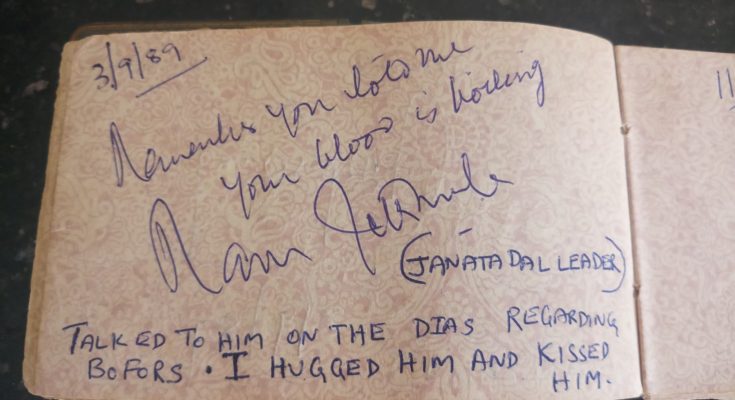 3/9/89
Remember you told me
your blood is boiling
Ram Jethmala
(JANATA DAL LEADER)
TALKED TO HIM ON THE DIAS REGARDING
BOFORS. I HUGGED HIM AND KISSED
HIM.
11